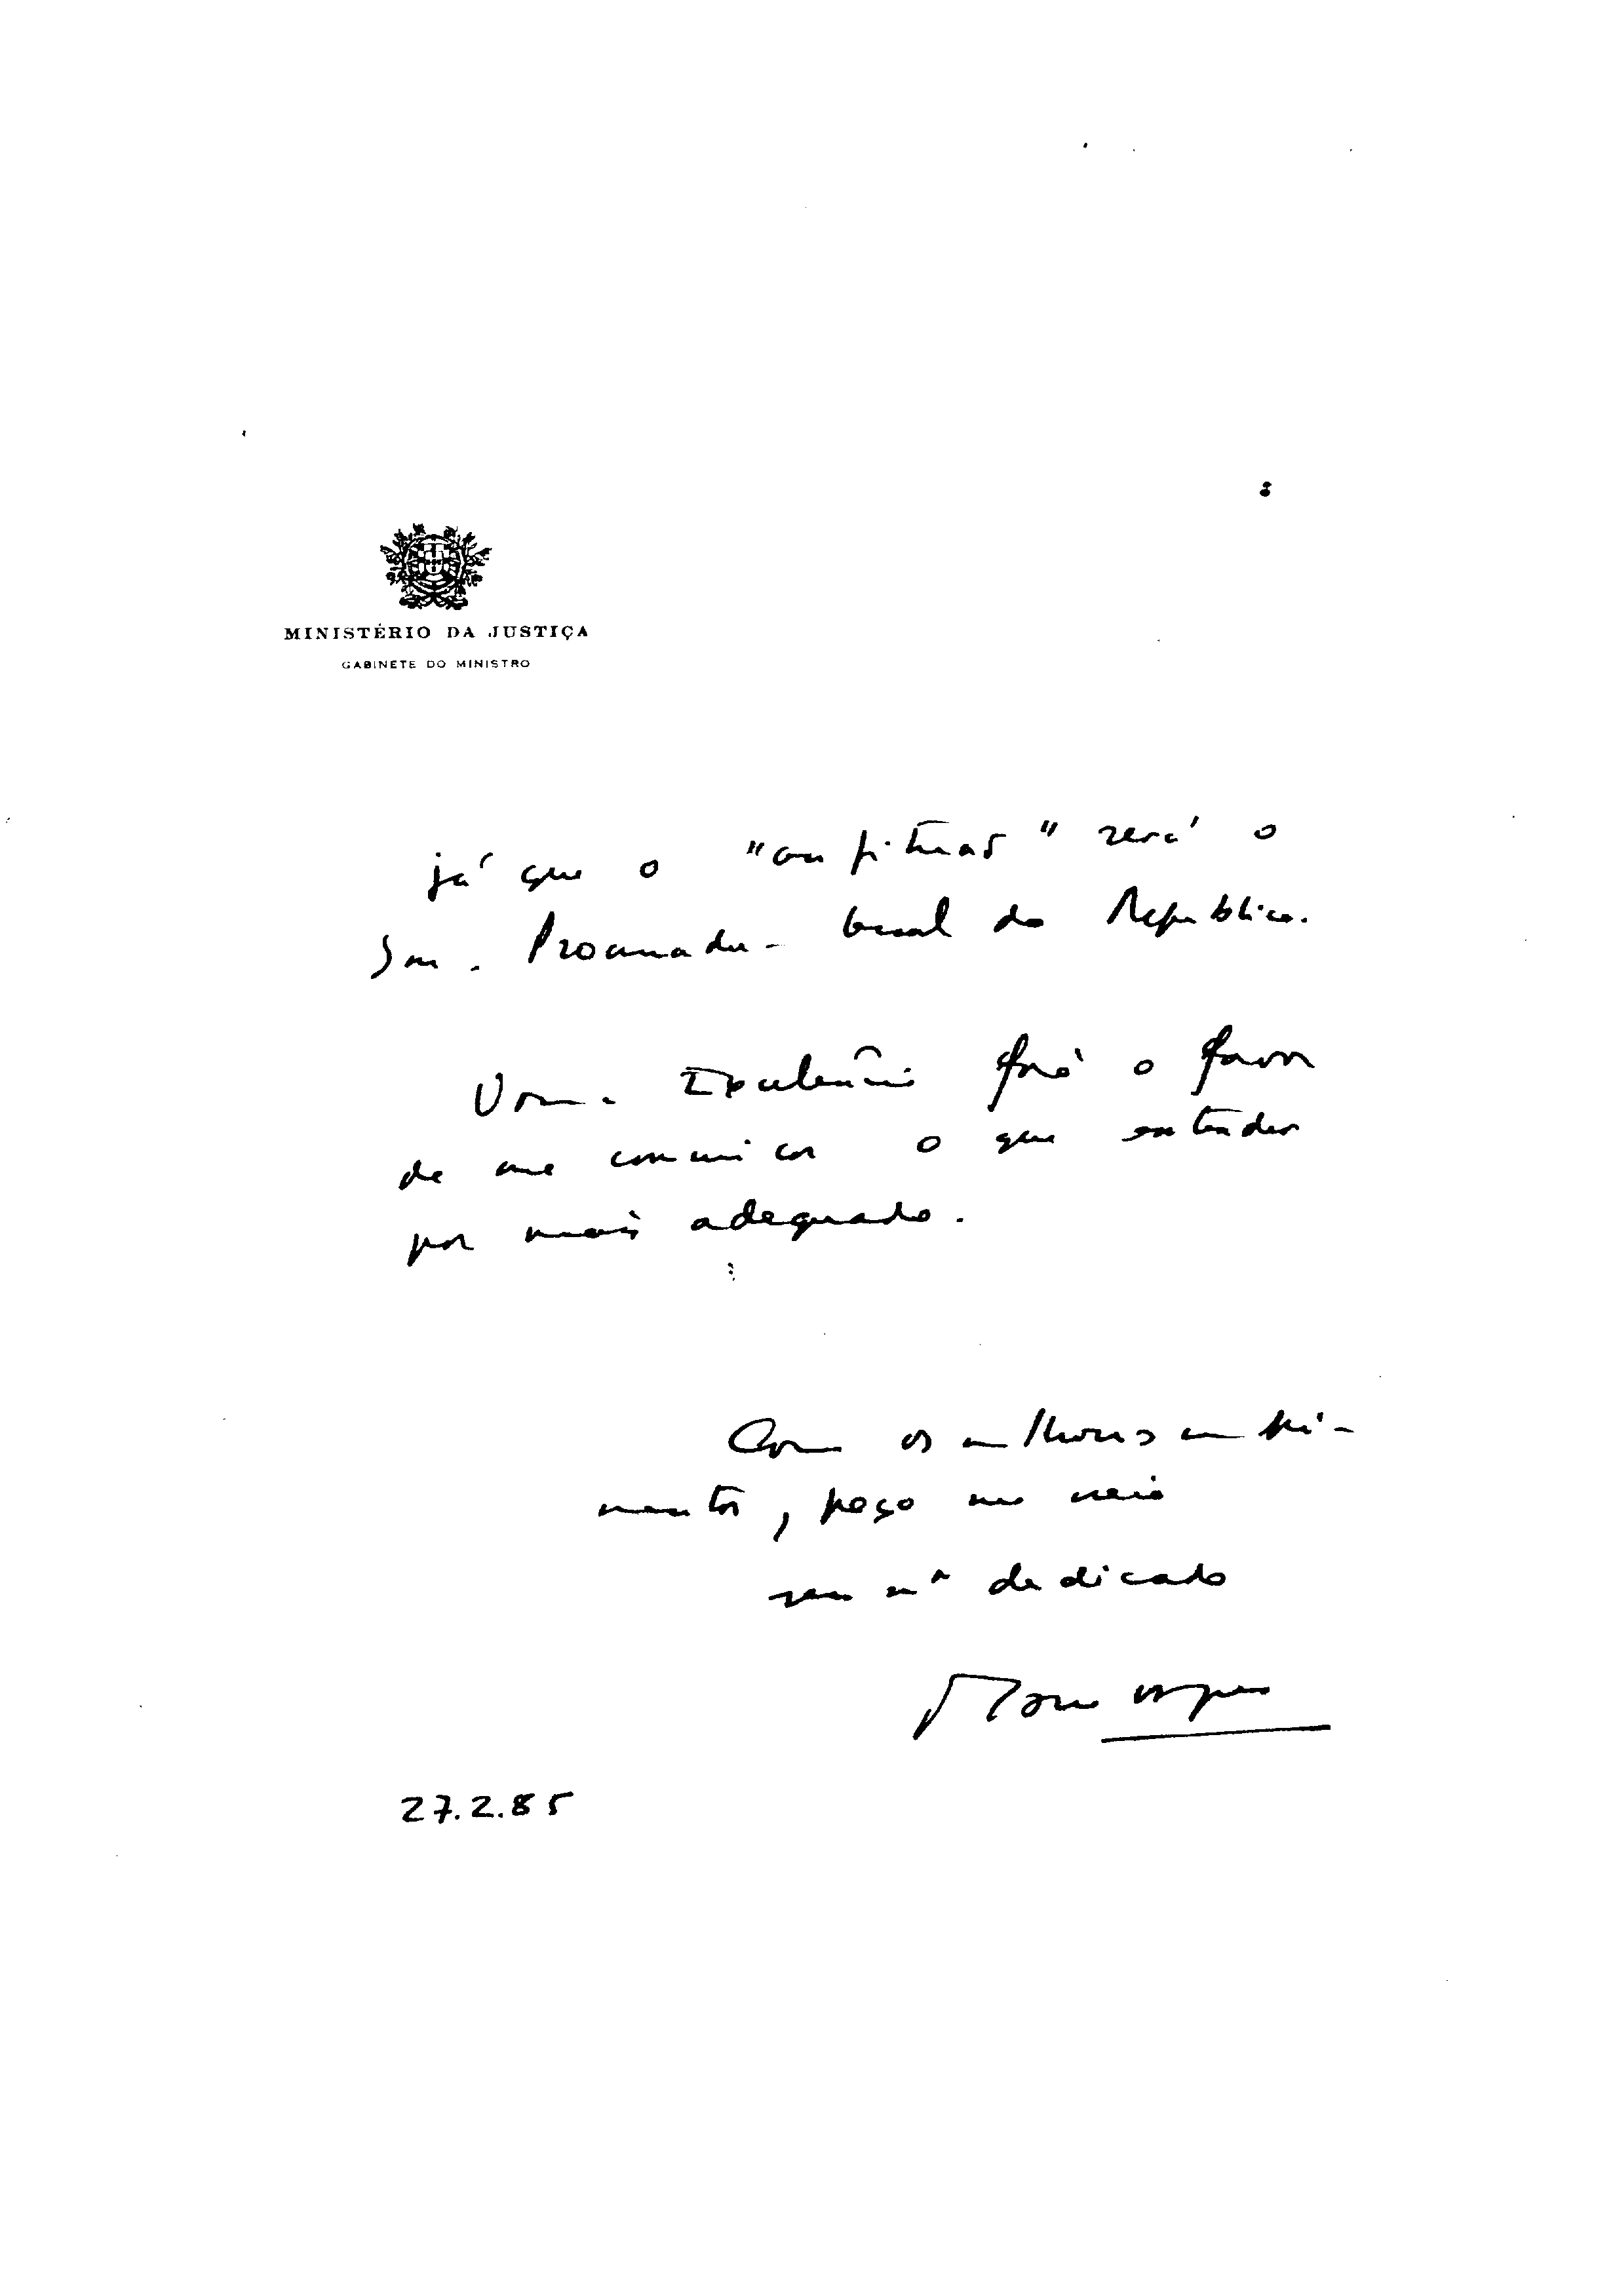 MINISTÉRIO DA JUSTIÇA
GABINETE DO MINISTRO
já que o "anfitrião" será o
Sr. Procurador-Geral da República.
Vossa Excelência fará o favor
de me comunicar o que entender
por mais adequado.
Com os melhores cumpri-
mentos, peço me creia
seu mº dedicado
27.2.85